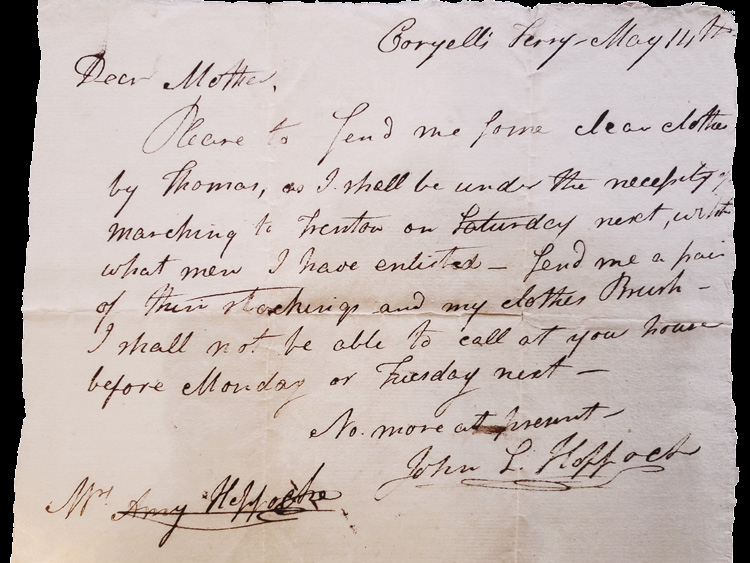 Coryell's Ferry - May 14th
Dear Mother,
Please to Send me some clean clothes
by Thomas, as I shall be under the necessity of
marching to Trenton on Saturday next, with
what men I have enlisted - Send me a pair
of thin stockings and my clothes Brush -
I shall not be able to call at you house
before Monday or Tuesday next -
No more at present -
John L. Hoppock
Mrs Amy Hoppocke